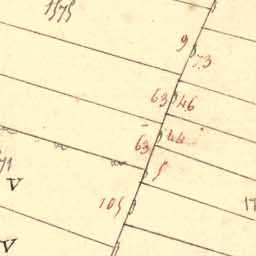 1575
9
73
63 46
63 44
5
71
V
105
17
V